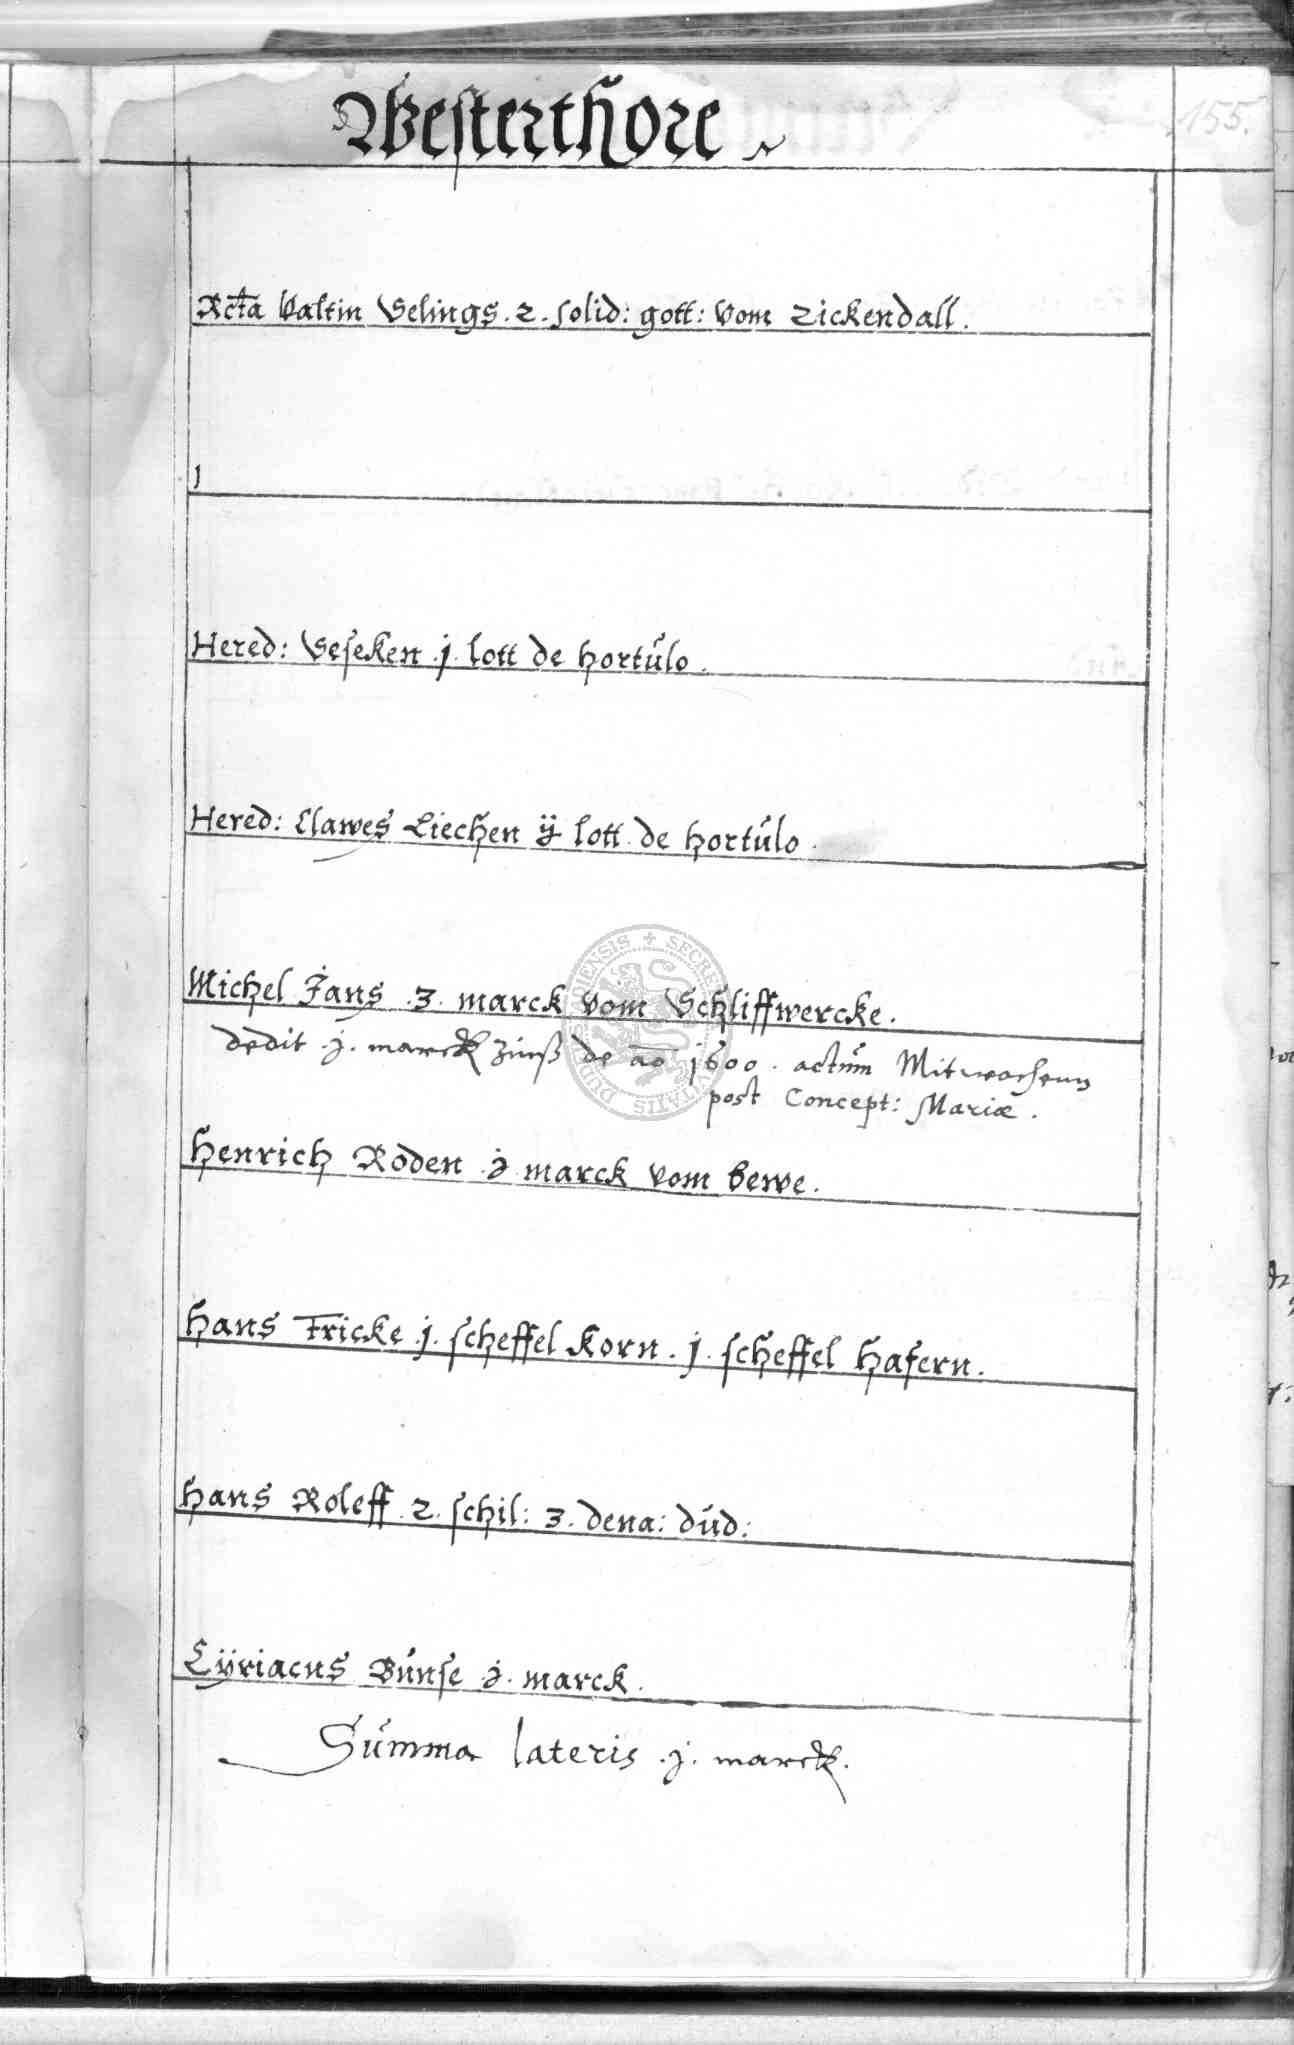 Westerthore
155.
Rcta Valtin Selings . 2 . solid: gott: vom Zickendall .
Hered: Veseken . j . lott de hortulo .
Hered: Clawes Liechen ij lott de hortulo .
Michel Jans . 3 . marck vom Schliffwercke .
dedit . j . marck Zinß de ao 1600 . actum Mitwochenn
post Concept: Mariæ .
Henrich Roden . j . marck vom bewe .
Hans Fricke . j . scheffel Korn . j . scheffel Hafern .
Hans Roleff . 2 . schil: 3 . dena: dud:
Cÿriacus Bunse . j . marck .
Summa lateris . j . marck .